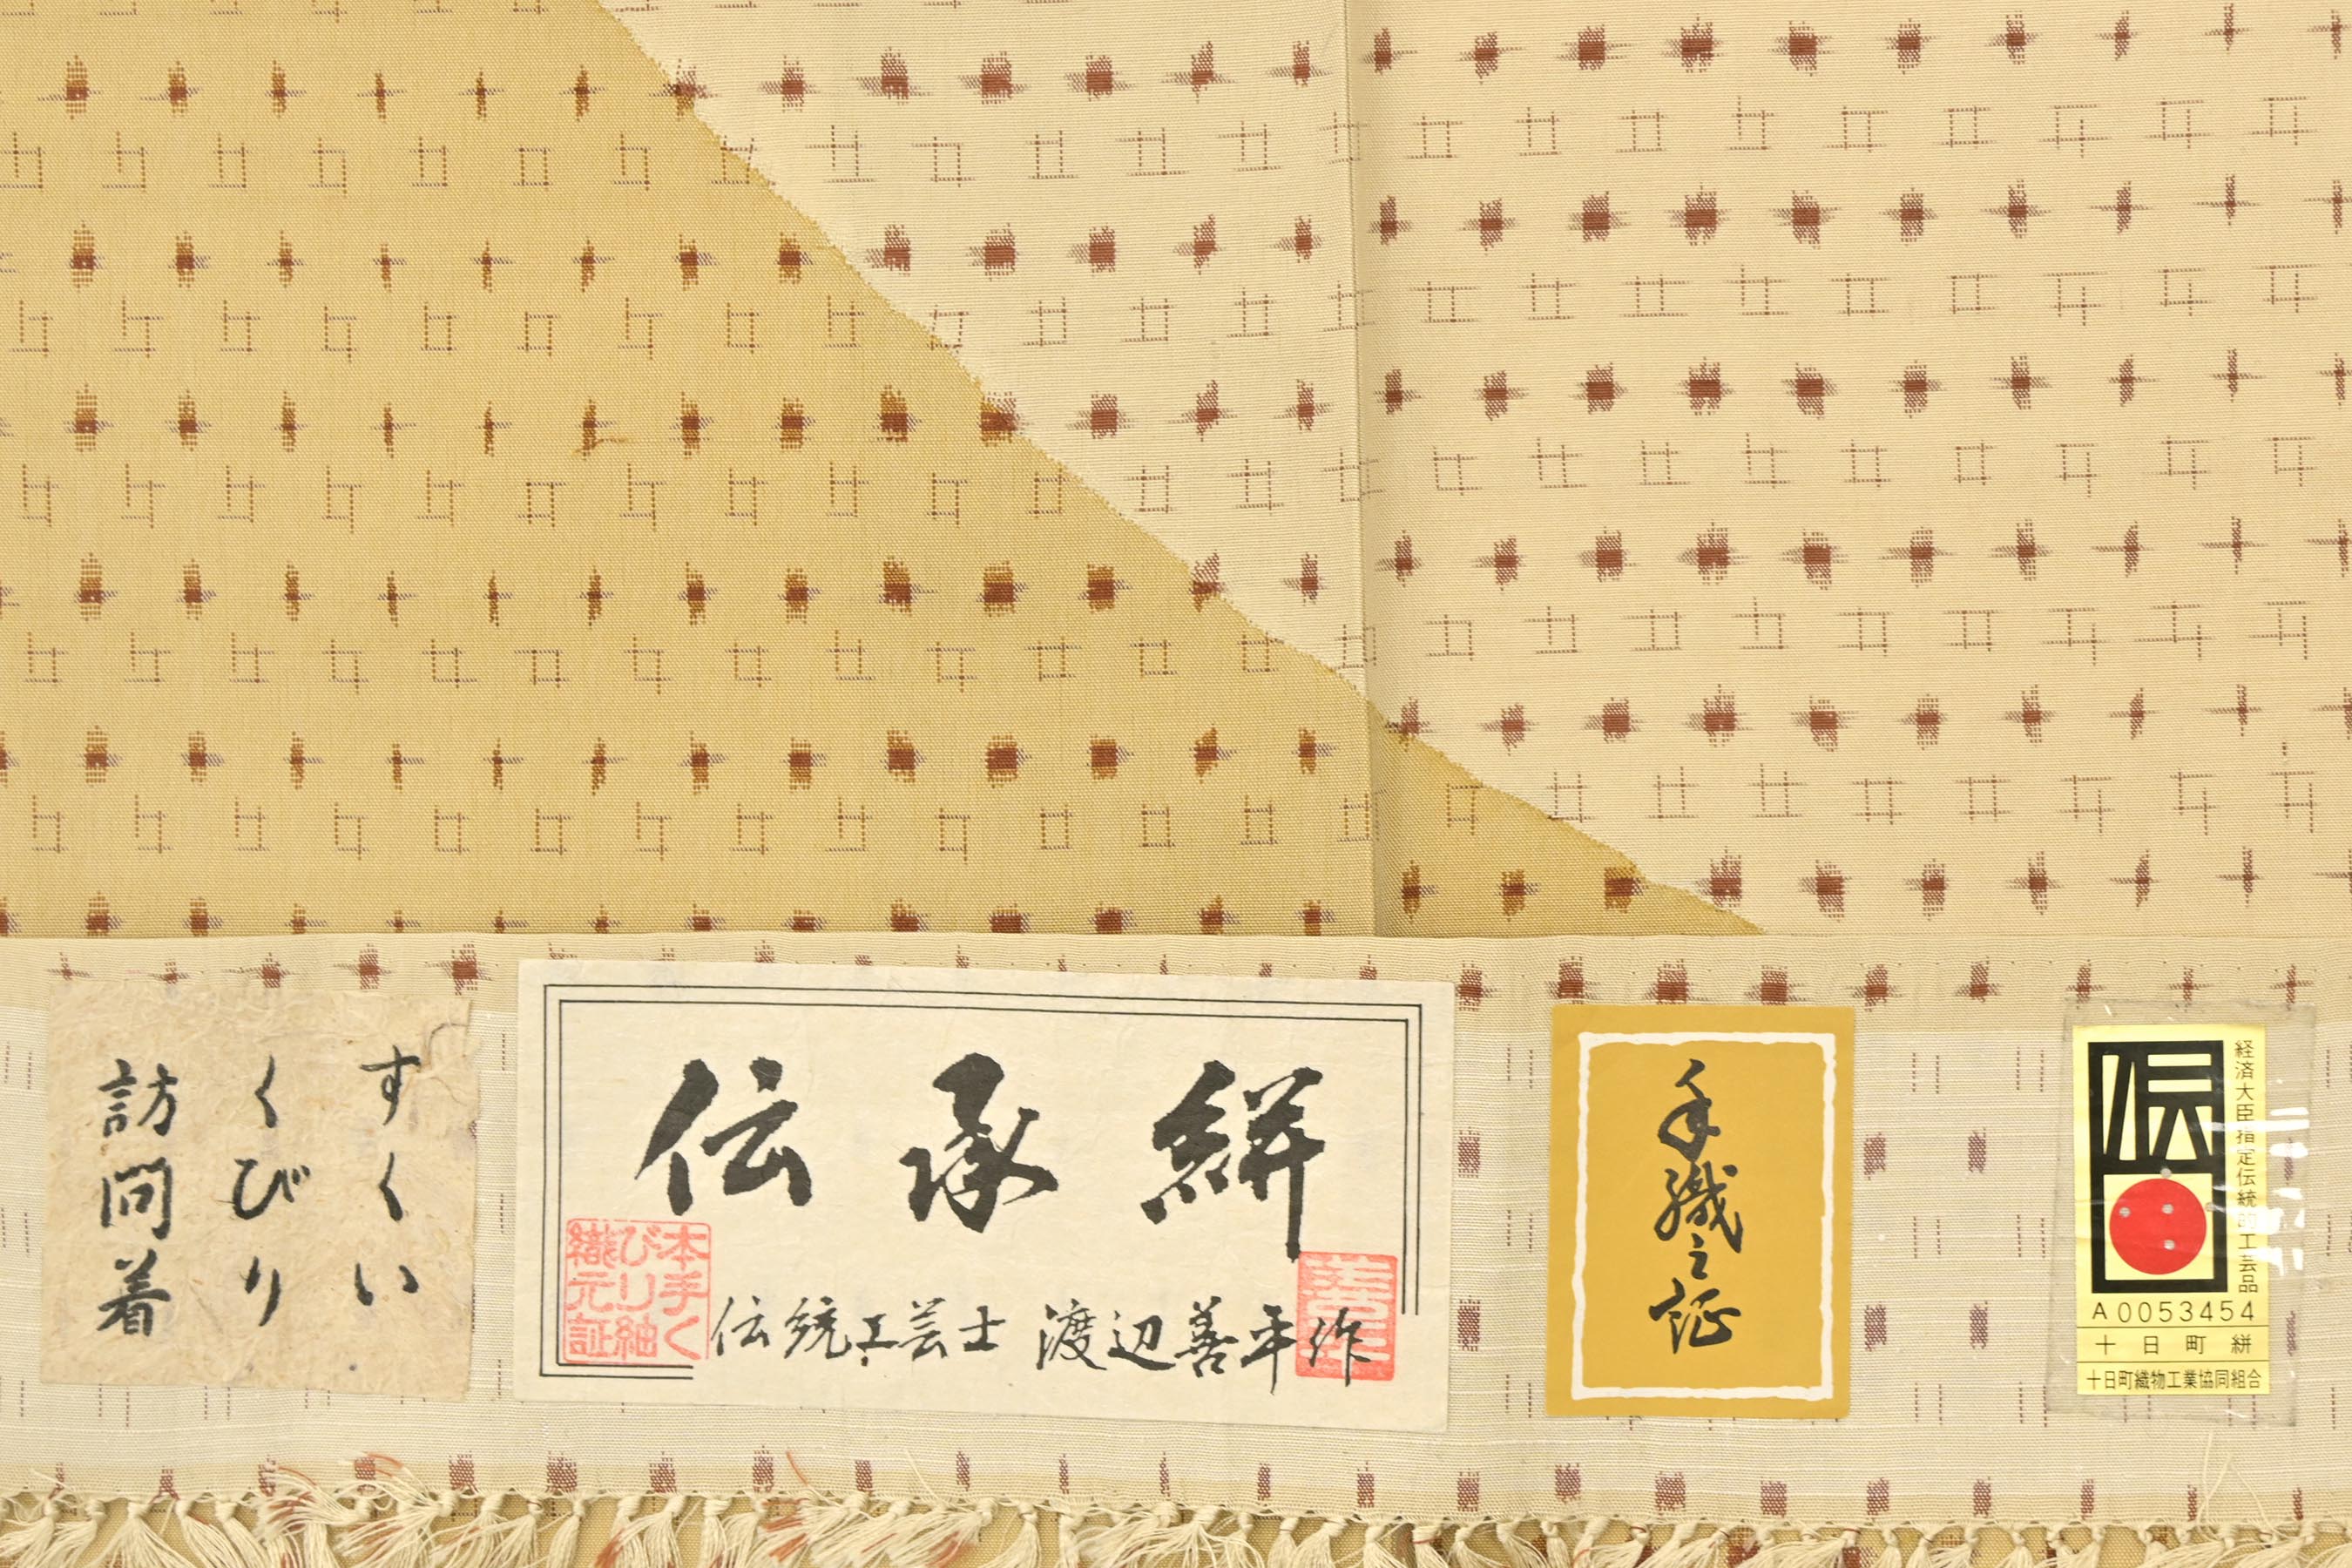 すくい
くびり
訪問着
伝承絣
本手く
びり紬
織元証
伝統工芸士 渡辺善平作
手織之証
伝
経済大臣指定伝統的工芸品
A0053454
十日町絣
十日町織物工業協同組合